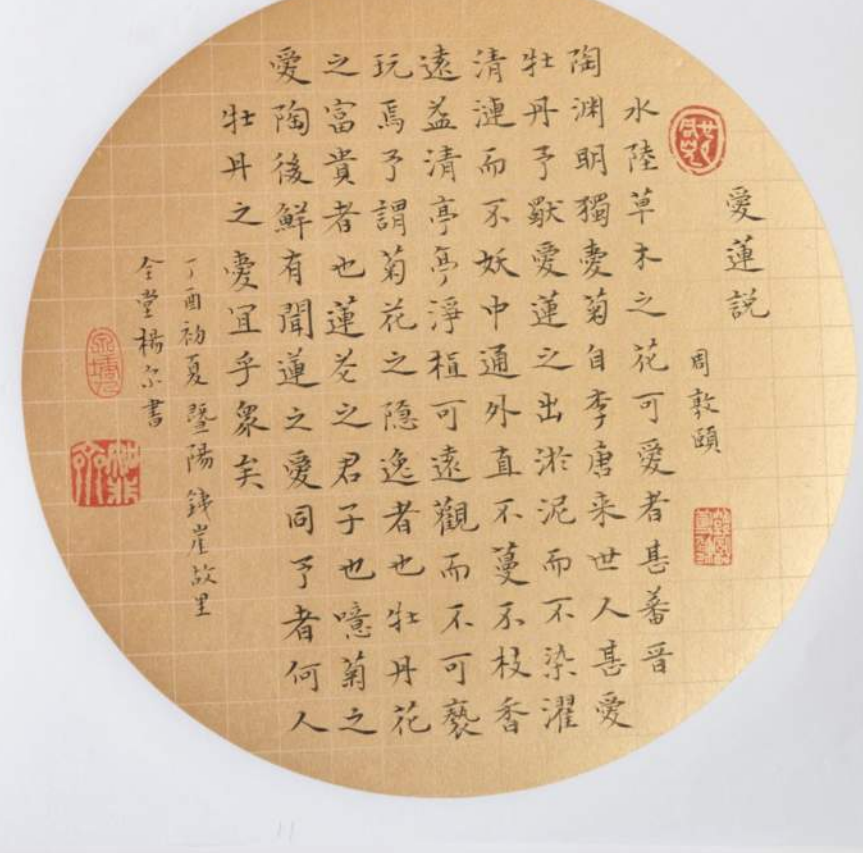 愛蓮説
周敦頤
水陸草木之花可愛者甚蕃晋
陶渊明獨愛菊自李唐来世人甚愛
牡丹予愛蓮之出淤泥而不染濯
清漣而不妖中通外直不蔓不枝香
遠益清亭亭淨植可遠觀而不可褻
玩焉予謂菊花之隠逸者也牡丹花
之富貴者也蓮花之君子也噫菊之
愛陶後鮮有聞蓮之愛同予者何人
牡丹之愛宜乎衆矣
丁酉初夏暨陽崖故里
全堂楊尔書